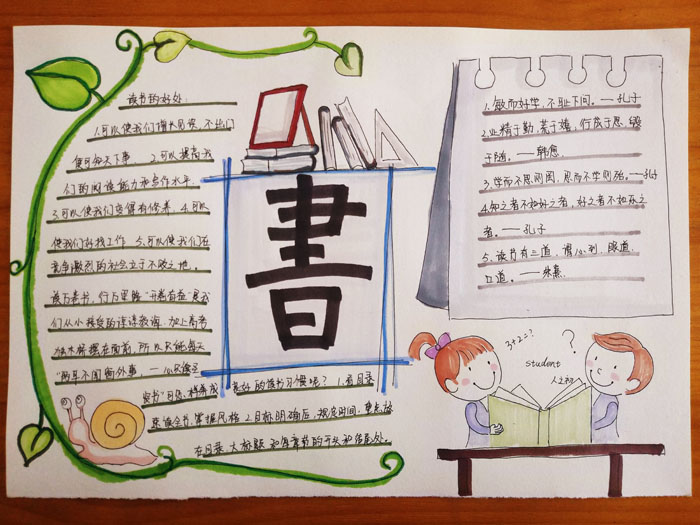 读书的好处:
1.可以使我们增长见识,不出门
便可知天下事 2.可以提高我
们的阅读能力和写作水平
3.可以使我们变得有修养 4.可以
使我们好找工作 5.可以使我们在
竞争激烈的社会立于不败之地。
读万卷书,行万里路 "开卷有益"是我
们从小接受的谆谆教诲,加上高考
独木桥摆在面前,所以只能每天
"两耳不闻窗外事,一心只读圣
贤书"可是,样养成
良好的读书习惯呢? 1.看目录
书,掌握风格 2.目标明确后,视度时间,重点放
在目录、大标题和每章节的开头和结尾处。
書
1.敏而好学,不耻下问。——孔子
2.业精于勤,荒于嬉,行成于思,毁
于随。——韩愈
3.学而不思则罔,思而不学则殆。——孔子
4.知之者不如好之者,好之者不如乐之
者。——孔子
5.读书有三道,谓心到,眼道,
口道。——朱熹
3+2=?
?
student
人之初